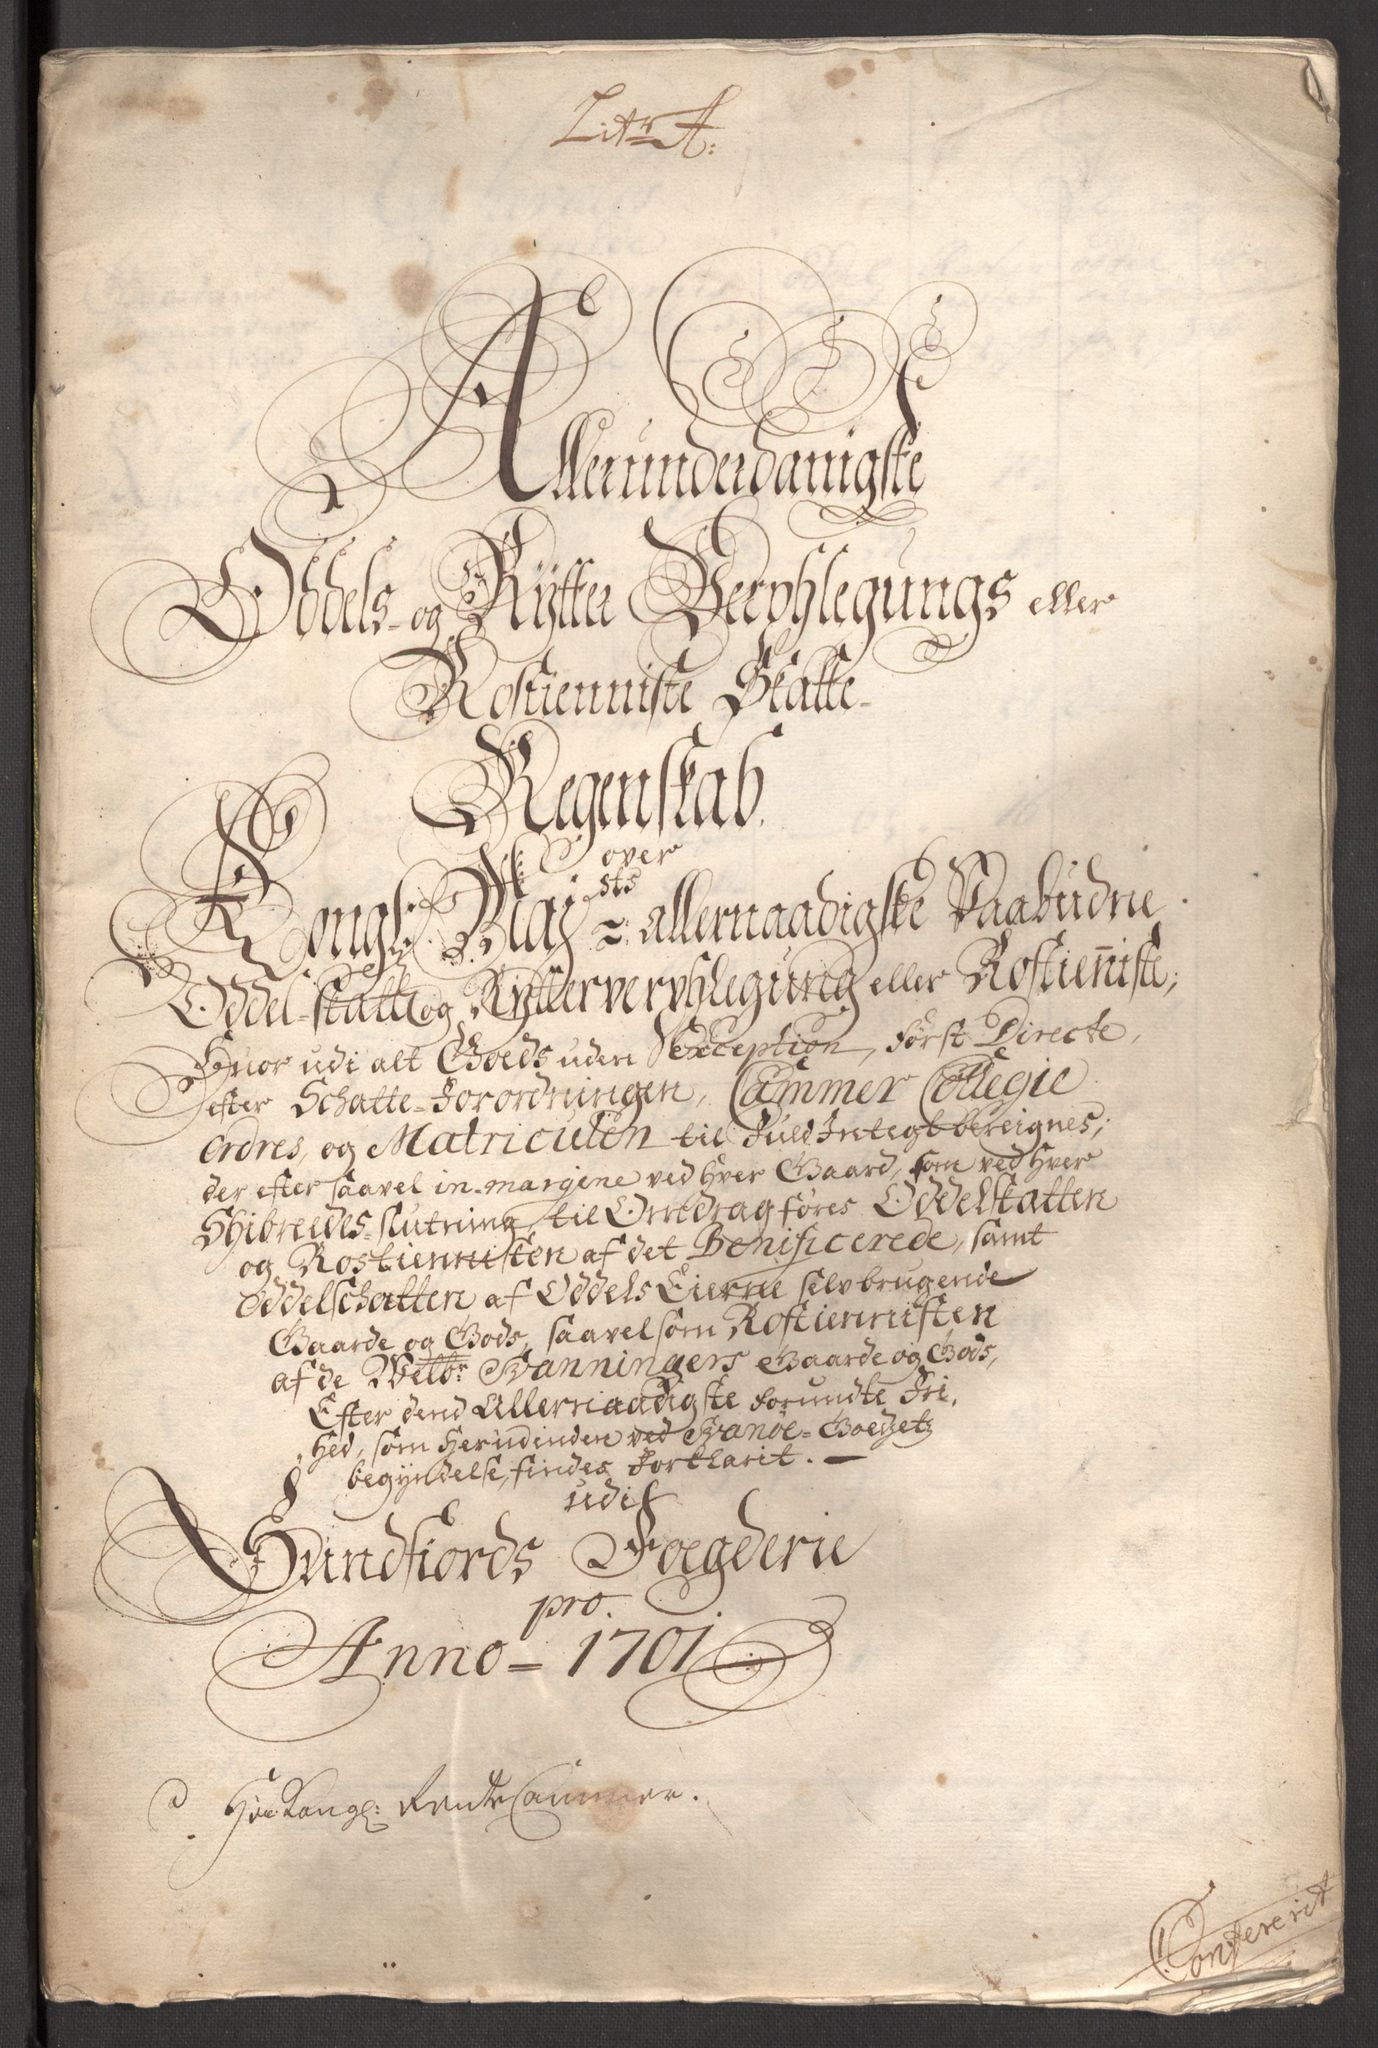 Litr A:
Allerunderdanigste
Oddels- og Rÿtter Verphlegungs eller
Rostienniste Skatte-
Regenskab.
over
Kongl: Maj sts allernaadigste Paabudne
Oddel-skatt og Rytterverphlegung eller Rostienniste;
Huor udi alt Goeds uden Exception, først Directe,
efter Schatte-Forordningen, Cammer Collegie
ordres, og Matriculen til fuld Integl bereignes;
der efter saavel in margine ved hver Gaard, som ved hver
Schibreedes slutning, til Omdrag føres Oddelskatten
og Rostiennisten af det Benificerede, samt
Oddelschatten af Oddels Eierne selv brugende
Gaarde og Gods, saavelsom Rostiennisten
af de Velbr: Svanningers Gaarde og Gods,
Efter dend Allernaadigste forundte Fri-
hed, som herudinden ved Svanøe-Goedzetz
begyndelse, findes forklarit. —
udi
Sundfiords Foegderie
pro.
Anno - 1701
Kongl: Rente Cammer.
Confererit